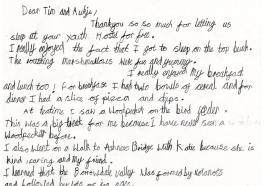 Dear Tim and
Thankyou so so much for letting us
stop at your youth Hostel for free.
I really enjoyed the fact that I got to sleep on the top bunk.
The roasting marshmallows was fun and yummy.
I really enjoyed my breakfast
and lunch too! For breakfast I had two bowls of cereal and for
dinner I had a slice of pizza and chips.
At teatime I saw a Woodpecker on the bird feeder.
This was a big treat for me because I have never seen a
Woodpecker before.
I also went on a Walk to Ashness Bridge with Katie because she is
kind, caring and my friend.
I learned that the Borrowdale valley was formed by Volcanoes
and followed by lots of ice ages.